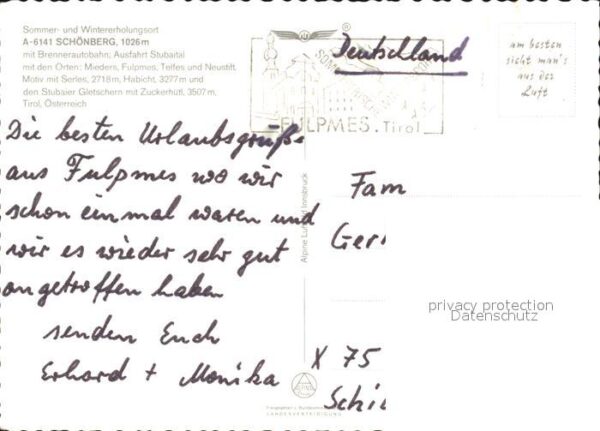 Sommer- und Wintererholungsort
A-6141 SCHÖNBERG, 1026 m
mit Brennerautobahn; Ausfahrt Stubaital
mit den Orten: Mieders, Fulpmes, Telfes und Neustift.
Motiv mit Serles, 2718 m, Habicht, 3277 m und
den Stubaier Gletschern mit Zuckerhütl, 3507 m,
Tirol, Österreich
Die besten Urlaubsgrüße
aus Fulpmes wo wir
schon einmal waren und
wir es wieder sehr gut
angetroffen haben
senden Euch
Erhard + Monika
FULPMES. Tirol
Alpine Luftbild Innsbruck
LANDESVERTEIDIGUNG
Deutschland
am besten
sieht man's
aus der
Luft
Fam
Ger
privacy protection
Datenschutz
X 75
Schi